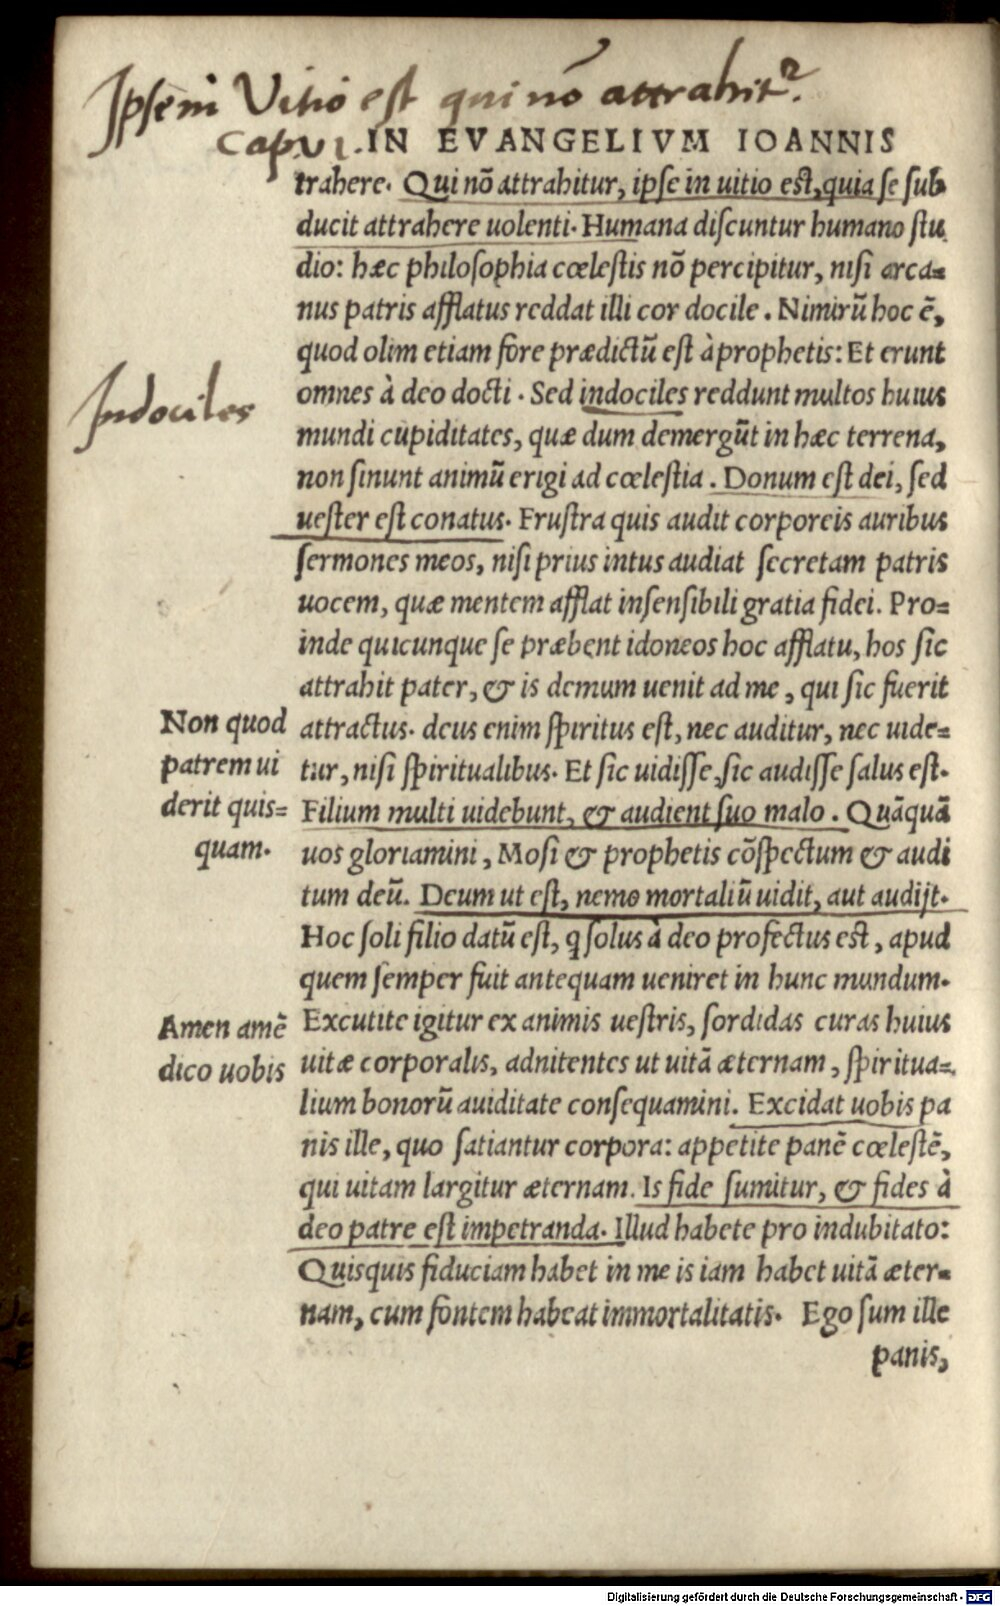 Ipse in Vitio est qui nō attrahit⁊.
Cap VI. IN EVANGELIVM IOANNIS
trahere. Qui nō attrahitur, ipse in uitio est, quia se sub
ducit attrahere uolenti. Humana discuntur humano stu
dio: hæc philosophia cœlestis nō percipitur, nisi arca=
nus patris afflatus reddat illi cor docile. Nimirū hoc ē,
quod olim etiam fore prædictū est à prophetis: Et erunt
omnes à deo docti. Sed indociles reddunt multos huius
Indociles
mundi cupiditates, quæ dum demergūt in hæc terrena,
non sinunt animū erigi ad cœlestia. Donum est dei, sed
uester est conatus. Frustra quis audit corporeis auribus
sermones meos, nisi prius intus audiat secretam patris
uocem, quæ mentem afflat insensibili gratia fidei. Pro=
inde quicunque se præbent idoneos hoc afflatu, hos sic
attrahit pater, & is demum uenit ad me, qui sic fuerit
Non quod
patrem ui
derit quis=
quam.
attractus. deus enim spiritus est, nec auditur, nec uide=
tur, nisi spiritualibus. Et sic uidisse, sic audisse salus est.
Filium multi uidebunt, & audient suo malo. Quāquā
uos gloriamini, Mosi & prophetis cōspectum & audi
tum deū. Deum ut est, nemo mortaliū uidit, aut audijt.
Hoc soli filio datū est, q solus à deo profectus est, apud
quem semper fuit antequam ueniret in hunc mundum.
Amen amē
dico uobis
Excutite igitur ex animis uestris, sordidas curas huius
uitæ corporalis, adnitentes ut uitā æternam, spiritua=
lium bonorū auiditate consequamini. Excidat uobis pa
nis ille, quo satiantur corpora: appetite panē cœlestē,
qui uitam largitur æternam. Is fide sumitur, & fides à
deo patre est impetranda. Illud habete pro indubitato:
Quisquis fiduciam habet in me is iam habet uitā æter=
nam, cum fontem habeat immortalitatis. Ego sum ille
panis,
Digitalisierung gefördert durch die Deutsche Forschungsgemeinschaft - DFG